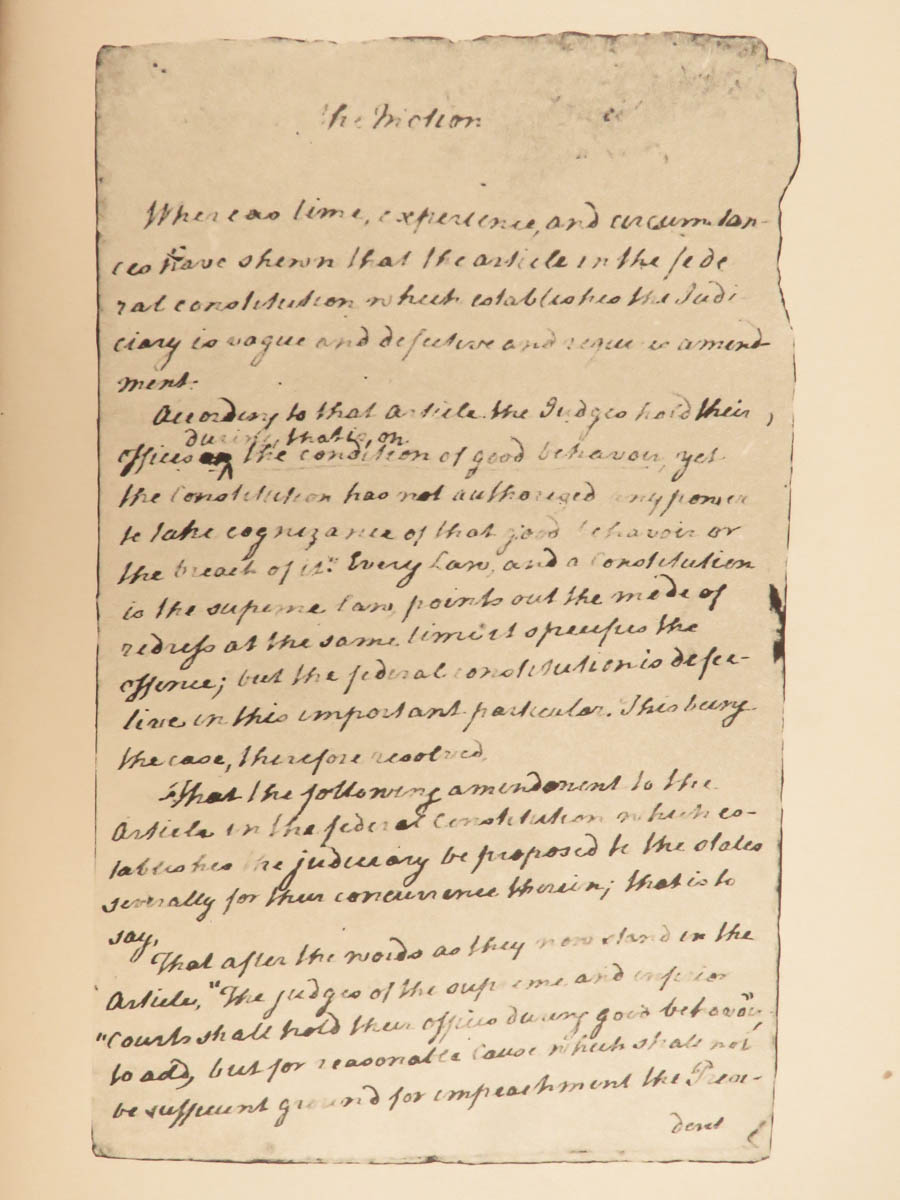 the Motion
Whereas time, experience, and circumstan-
ces have shewn that the article in the fede
ral constitution which establishes the Judi-
ciary is vague and defective and requires amend-
ment.
According to that Article the Judges hold their
during, that is, on
offices the condition of good behavoir, yet
the Constitution has not authorized any power
to take cognizance of that good behavoir or
the breach of it." Every Law, and a Constitution
is the supreme law, points out the mode of
redress at the same time it specifies the
offence; but the federal constitution is defec-
tive in this important particular. This being
the case, therefore resolved,
That the following amendment to the
Article in the federal Constitution which es-
tablishes the judiciary be proposed to the states
severally for their concurrence therein; that is to
say,
That after the words as they now stand in the
Article, "The judges of the supreme and inferior
"Courts shall hold their offices during good behavoir",
to add, but for reasonable Cause which shall not
be sufficient ground for impeachment the Presi-
dent